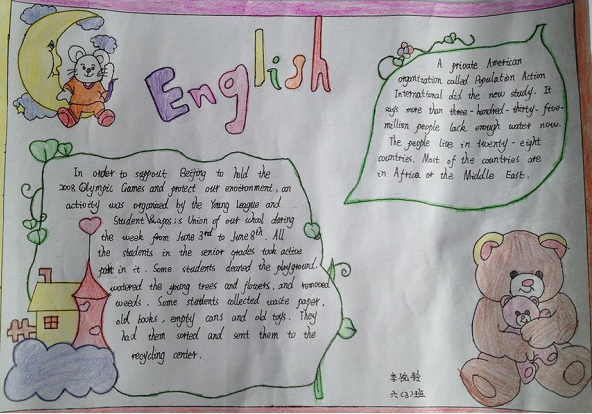 English
A private American
organization called Population Action
International did the new study. It
says more than three-hundred-thirty-five-
million people lack enough water now.
The people live in twenty-eight
countries. Most of the countries are
in Africa or the Middle East.
In order to support Beijing to hold the
2008 Olympic Games and protect our environment, an
activity was organized by the Young League and
Student Union of our school during
the week from June 3rd to June 8th. All
the students in the senior grades took active
part in it. Some students cleaned the playground,
watered the young trees and flowers, and removed
weeds. Some students collected waste paper,
old books, empty cans and old toys. They
had them sorted and sent them to the
recycling center.
李
六(3)班